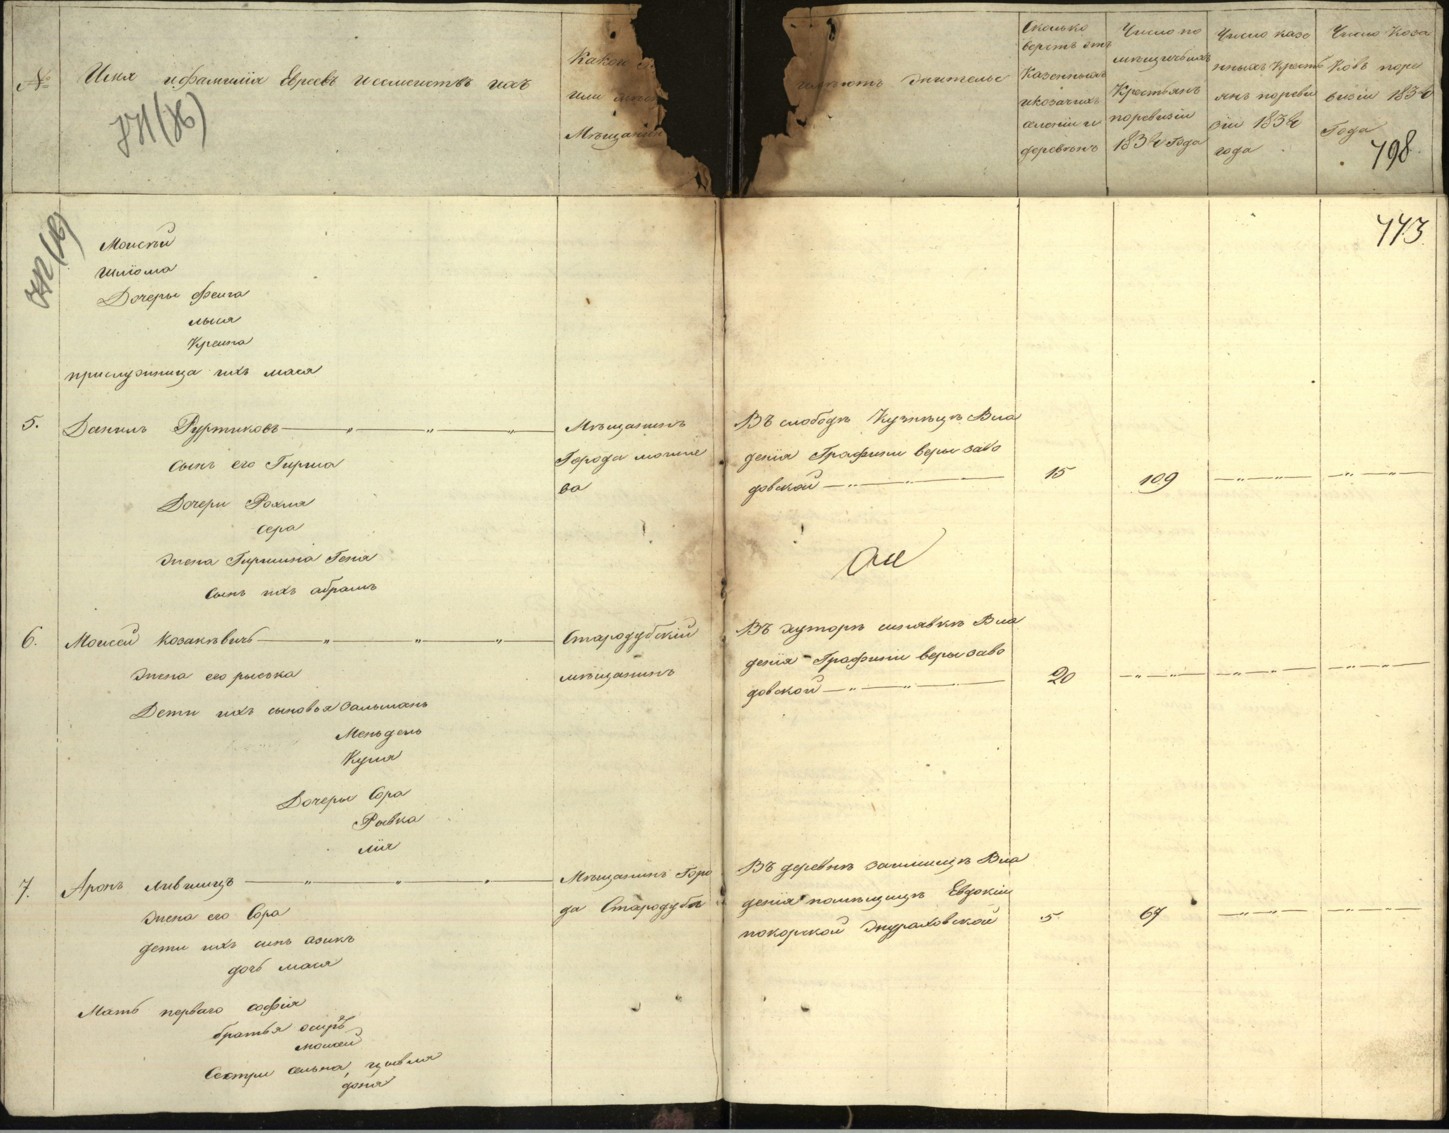 №
Имя и фамилия Евреевъ и семействъ ихъ
Какои
или
Мѣщанин
имѣютъ жительс
Сколько
верстъ отъ
Казенныхъ
и козачихъ
селении и
деревень
Число по
мѣщичьихъ
Крестьянъ
поревизіи
1834 года
Число казе
нныхъ Кресть
янъ пореви
зіи 1834
года
Число Коза
ковъ поре
визіи 1834
Года
798
773
Моисѣй
Шліома
Дочеры Феига
Креина
прислужница ихъ Мася
5. Данилъ Руртиковъ — „ — „ — „ —
сынъ его Гирша
Дочери Рохля
Сера
жена Гиршина Гена
Сынъ ихъ абрамъ
Мѣщанинъ
Города могиле
ва
Въ слободѣ Кузнѣцѣ Вла
денія Графини веры заво
довской — „ — „ —
15
109
— „ — „ —
— „ — „ —
6. Моисей Козакѣвичъ — „ — „ — „ —
Жена его рыська
Дети ихъ сыновья Зальманъ
Меньдель
Куша
Дочеры Сора
Рывка
лія
Стародубскій
мѣщанинъ
Въ хуторѣ синявкѣ Вла
денія Графини веры заво
довской — „ — „ —
20
— „ — „ —
— „ — „ —
— „ — „ —
7. Аронъ Лившицъ — „ — „ — „ —
жена его Сора
дети ихъ синъ азикъ
дочь мася
Мать перваго софія
братья осиръ
моисей
Сестри сельна, цывля
доня
Мѣщанинъ Горо
да Стародуба
Въ деревнѣ заимищѣ Вла
денія помѣщицѣ Евдокіи
покорской жураховской
5
67
— „ — „ —
— „ — „ —